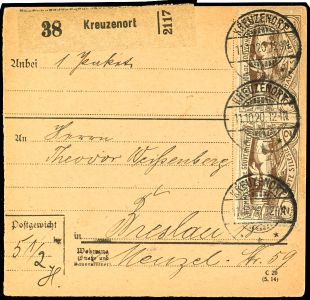 38 Kreuzenort
2117
KREUZENORT
Anbei 1 Paket
KREUZENORT
11.10.20.12-1N
An Herrn
Theodor Weißenberg
KREUZENORT
Postgewicht
in Breslau
Wohnung
(Straße und
Hausnummer)
Menzel-Str. 59
C 28
(5. 14)